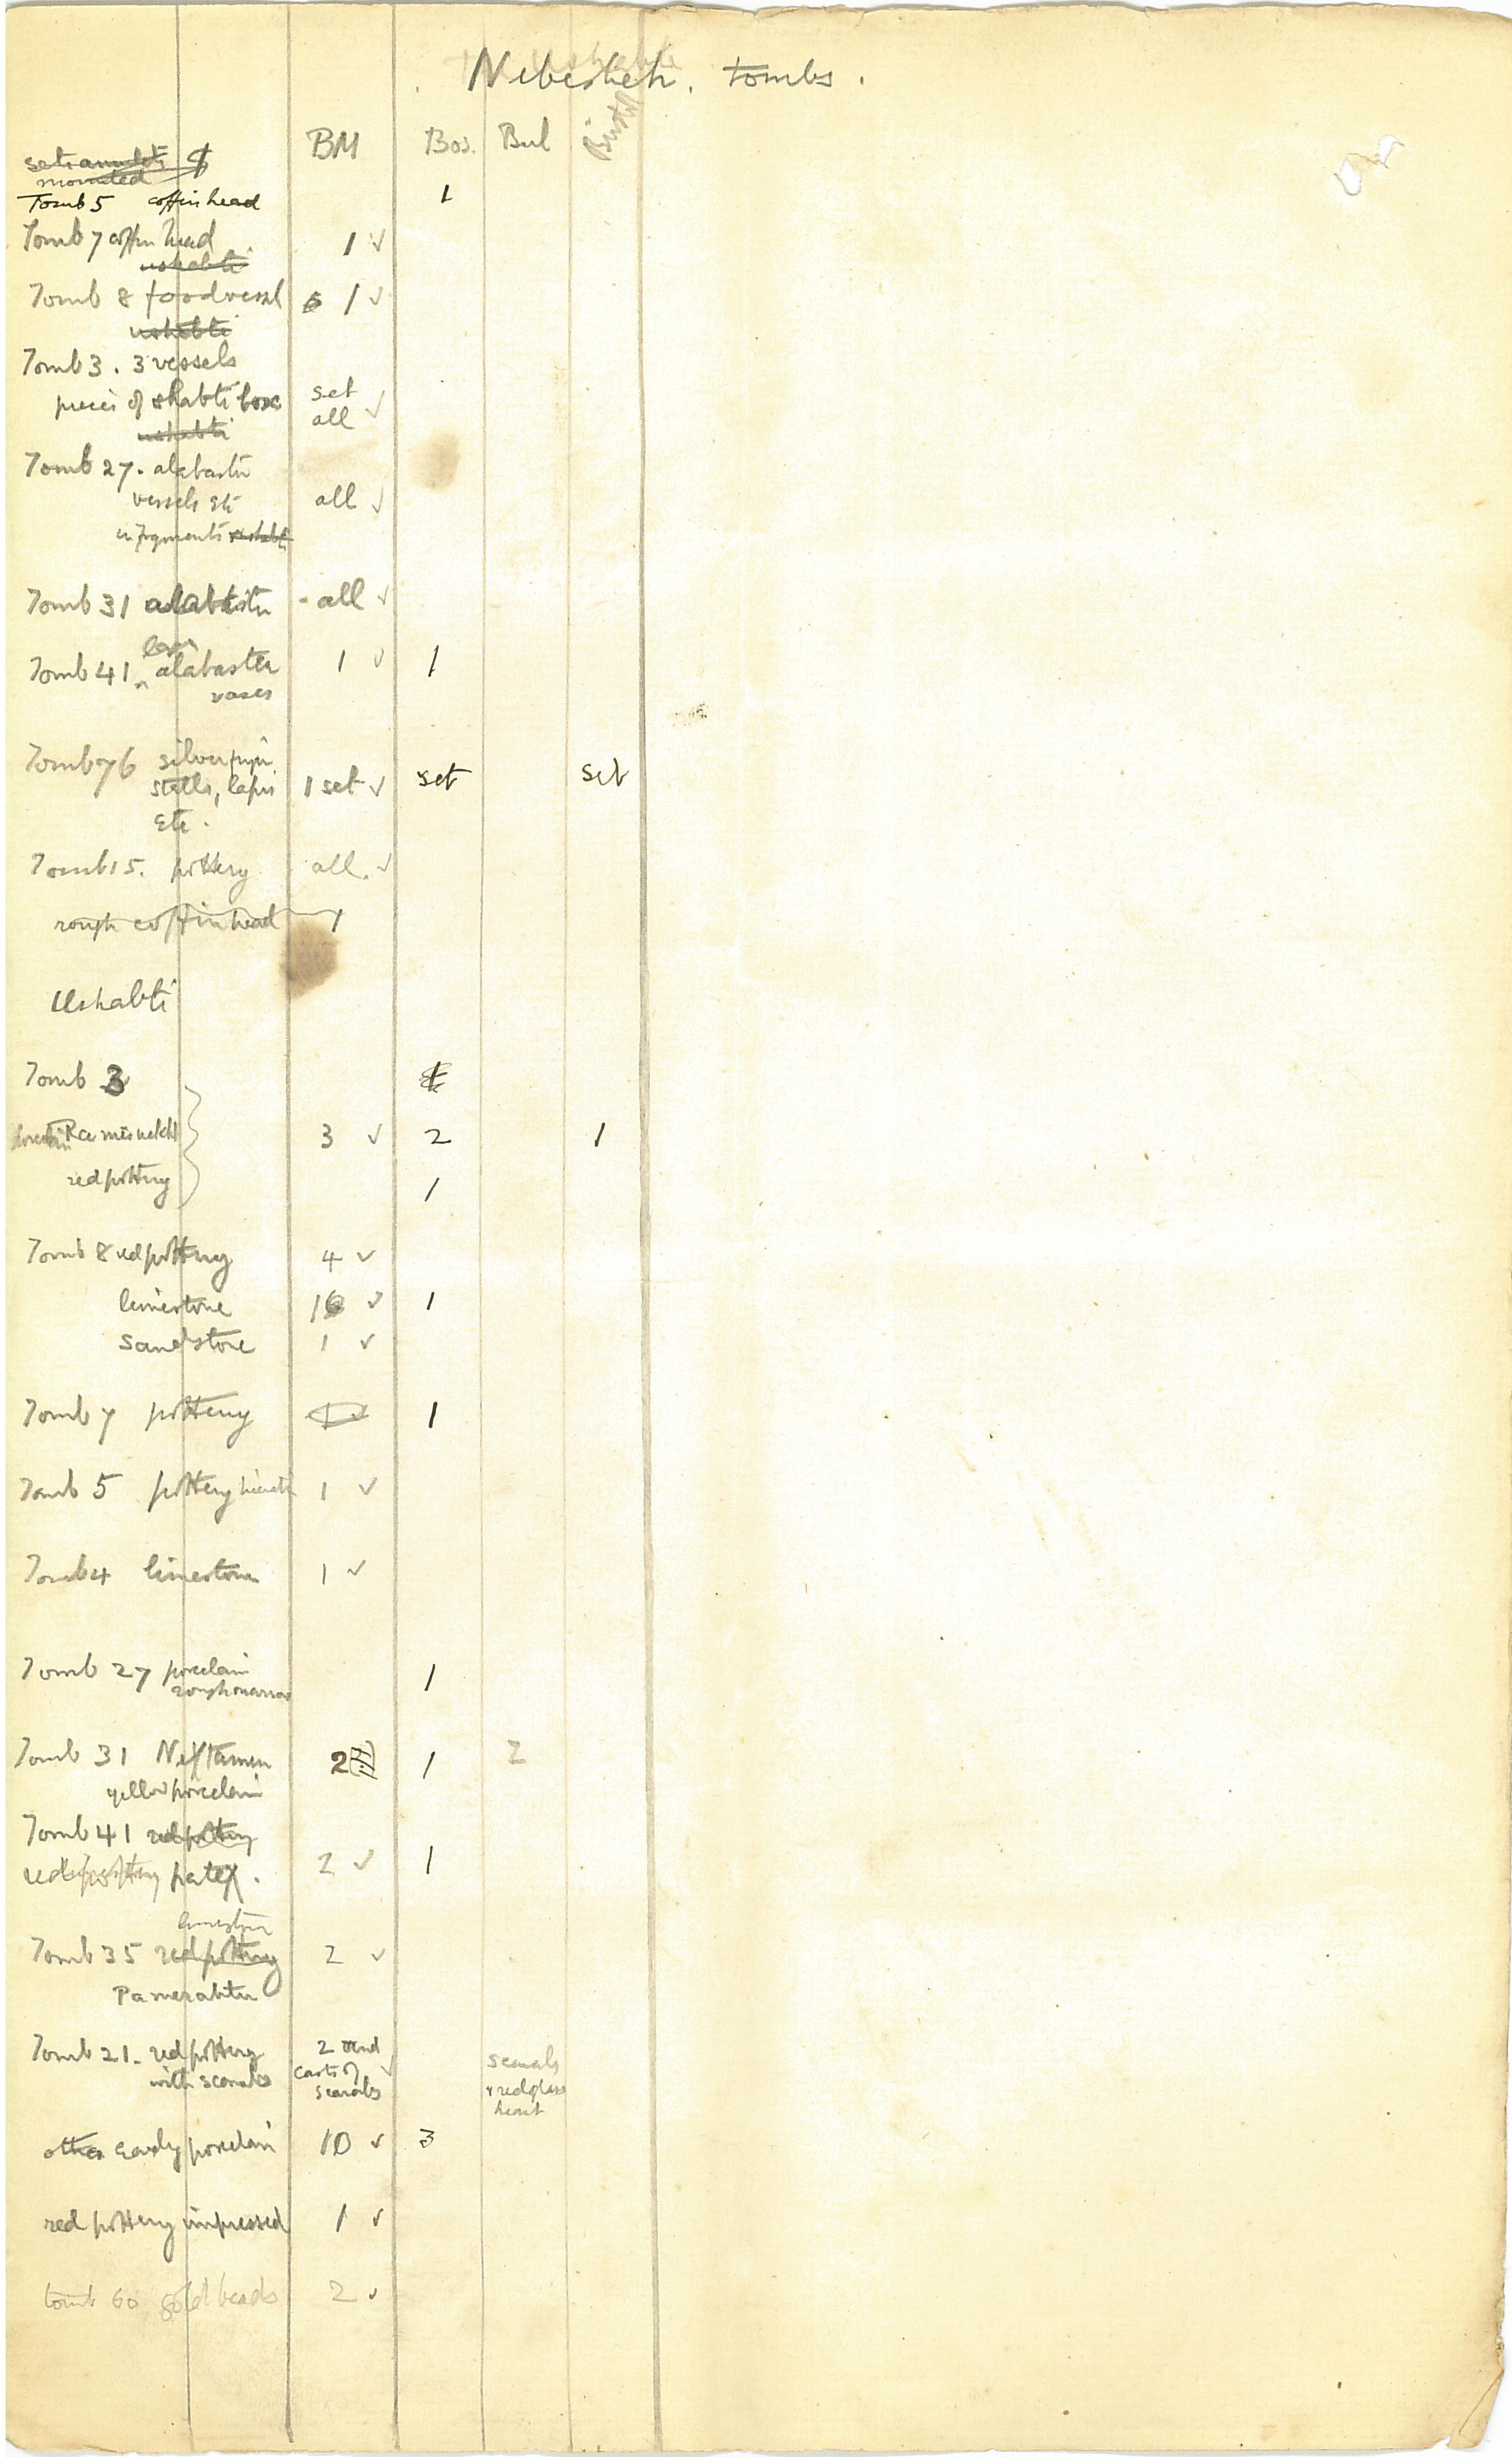 Nebesheh. tombs.
BM Bos. Bul Brist
set amulets
mounted
Tomb 5 coffin head 1
Tomb 7 coffin head 1 ✓
ushabti
Tomb 8 food vessel 1 ✓
ushabti
Tomb 3. 3 vessels
pieces of shabti box set all ✓
ushabti
Tomb 27. alabaster
vessels etc all ✓
in fragments ushabti
Tomb 31 alabaster - all ✓
Tomb 41 alabaster 1 ✓ 1
vases
Tomb 76 silver
stella, lapis 1 set ✓ set set
etc.
Tomb 15. pottery all. ✓
rough coffin head 1
Ushabti
Tomb 3
Ramesnekht 3 ✓ 2 1
red pottery 1
Tomb 8 red pottery 4 ✓
limestone 16 ✓ 1
sandstone 1 ✓
Tomb 7 pottery 1
Tomb 5 pottery 1 ✓
Tomb 4 limestone 1 ✓
Tomb 27 porcelain 1
Tomb 31 Neftamen 2 1 2
yellow porcelain
Tomb 41 red pottery
red pottery patex. 2 ✓ 1
limestone
Tomb 35 red pottery 2 ✓
Pamerahtu
Tomb 21. red pottery 2 and
with scarabs casts of ✓ scarabs
scarabs & red glass
heart
other early porcelain 10 ✓ 3
red pottery impressed 1 ✓
tomb 60 gold beads 2 ✓